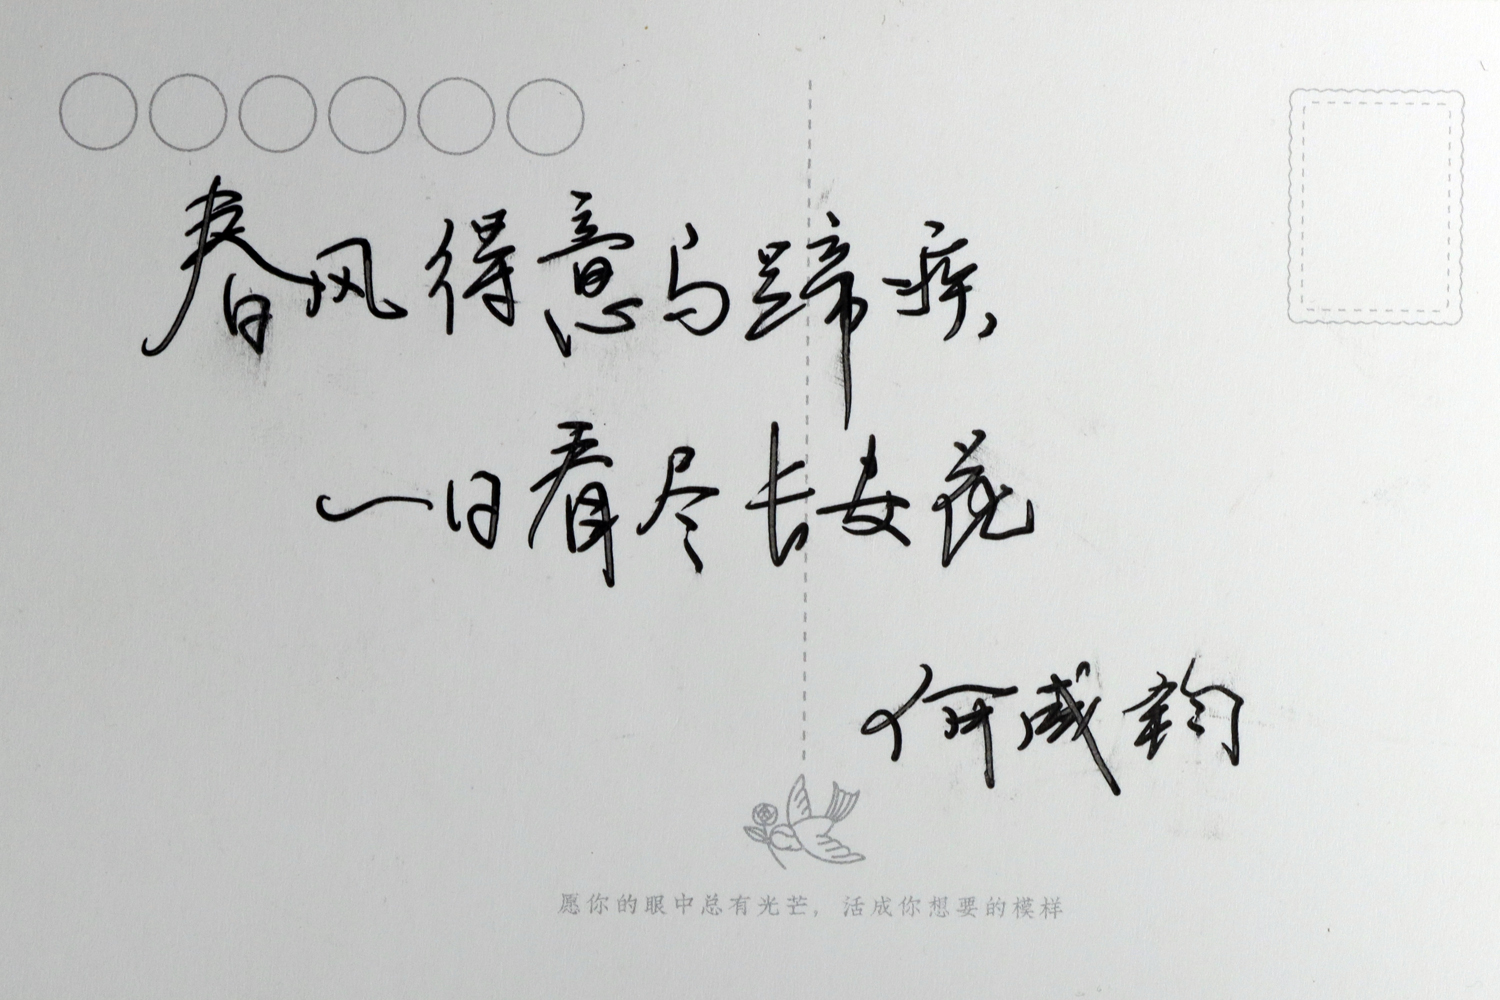 春风得意马蹄疾，
一日看尽长安花
何威韵
愿你的眼中总有光芒，活成你想要的模样